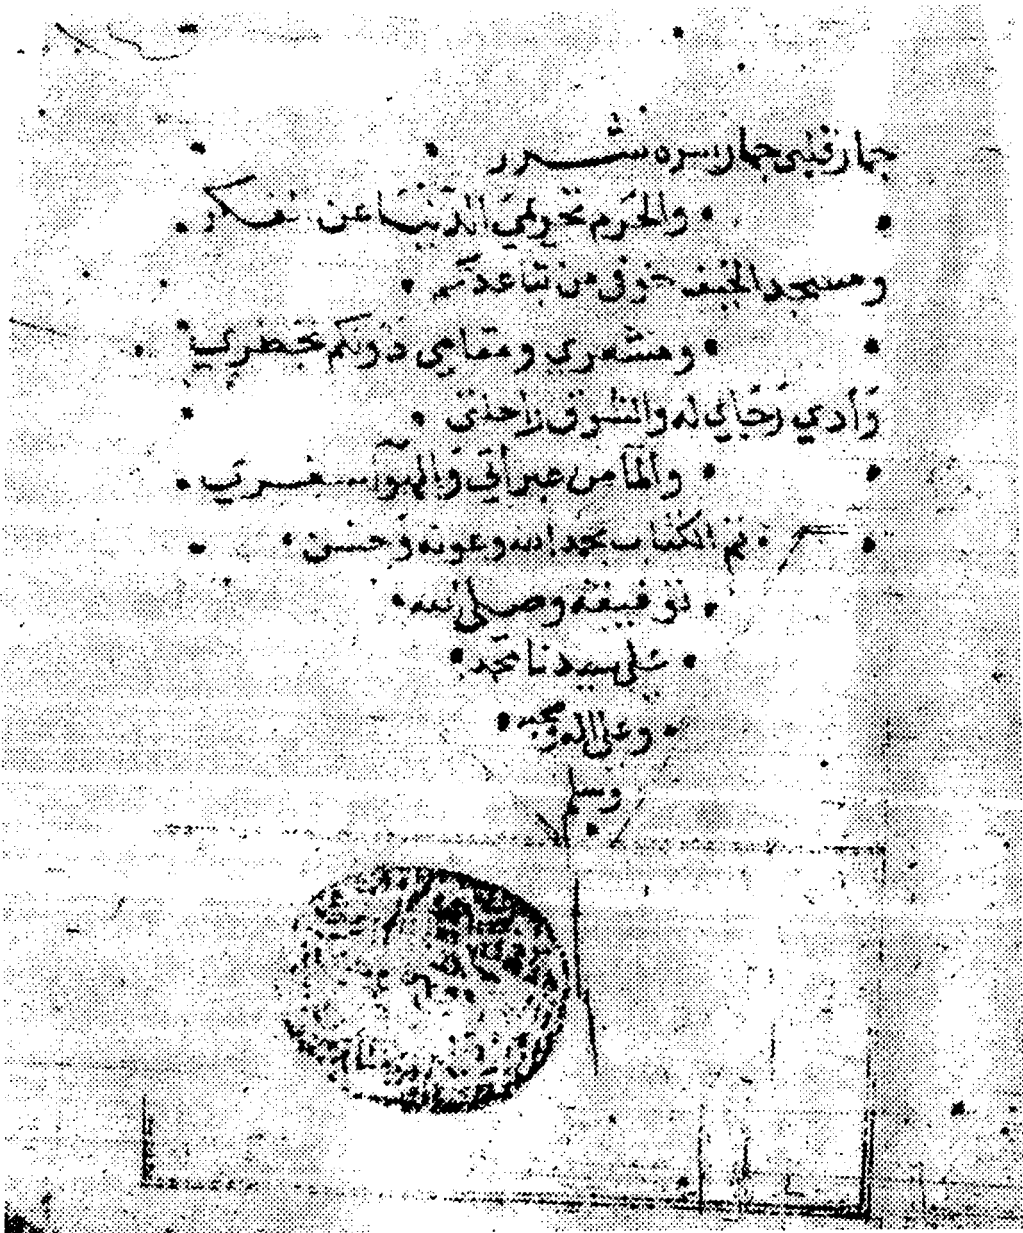 جمار قلبي جمار سره شرر
والحرم تحريمي الدنيا عن تفكر
ومسجد الخيف خوفي من تباعدكم
ومشعري ومقامي دونكم خطري
وادي رجاي له والشوق راحلتي
والما من عبراتي والهوا سفري
تم الكتاب بحمد الله وعونه وحسن
توفيقه وصلى الله
على سيدنا محمد
وعلى اله وصحبه
وسلم